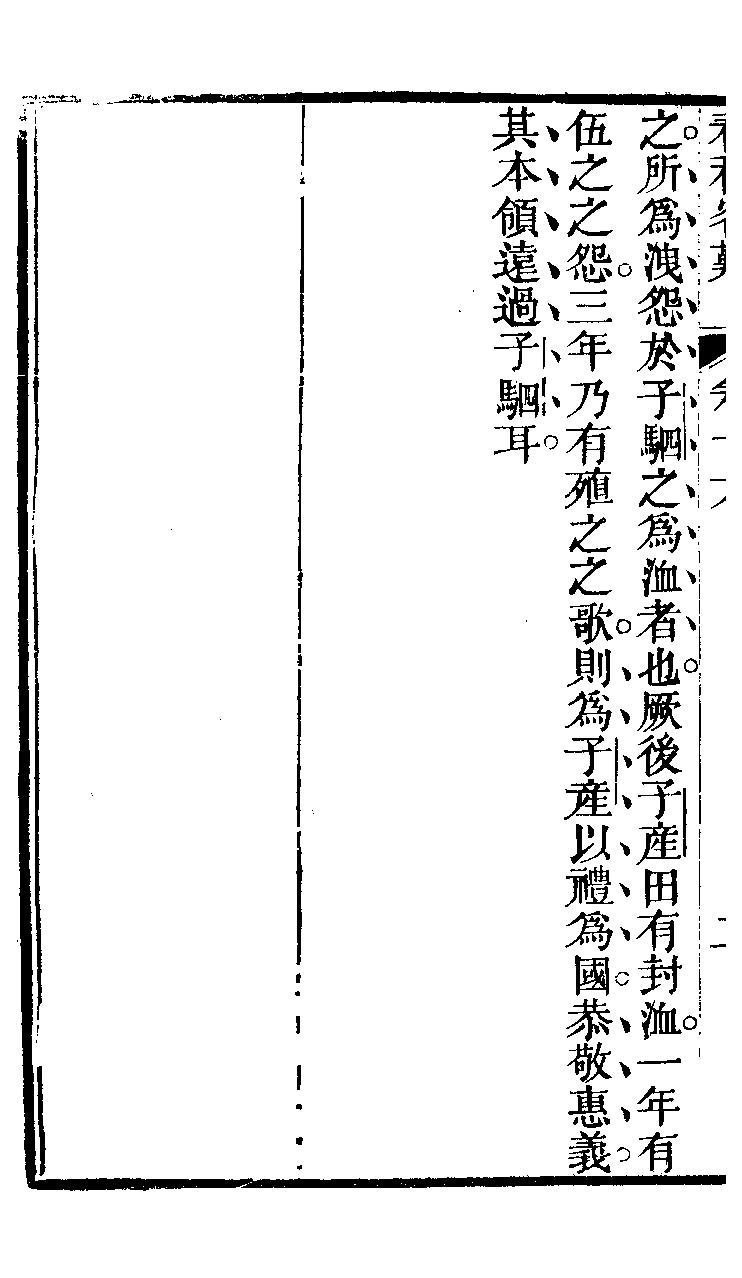 之所爲洩怨於子駟之爲洫者也厥後子產田有封洫一年有
伍之之怨三年乃有殖之之歌則爲子產以禮爲國恭敬惠義
其本領遠過子駟耳